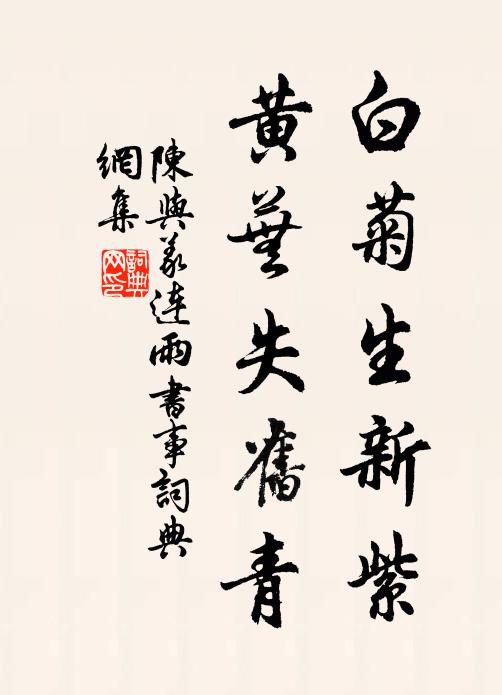 白菊生新紫
黃蕪失舊青
陳與義連雨書事詞典
網集
詞典
网印